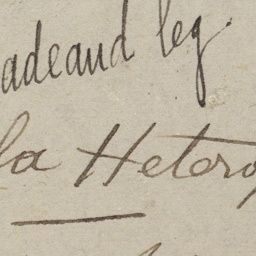 adeaud leg.
la Hetero